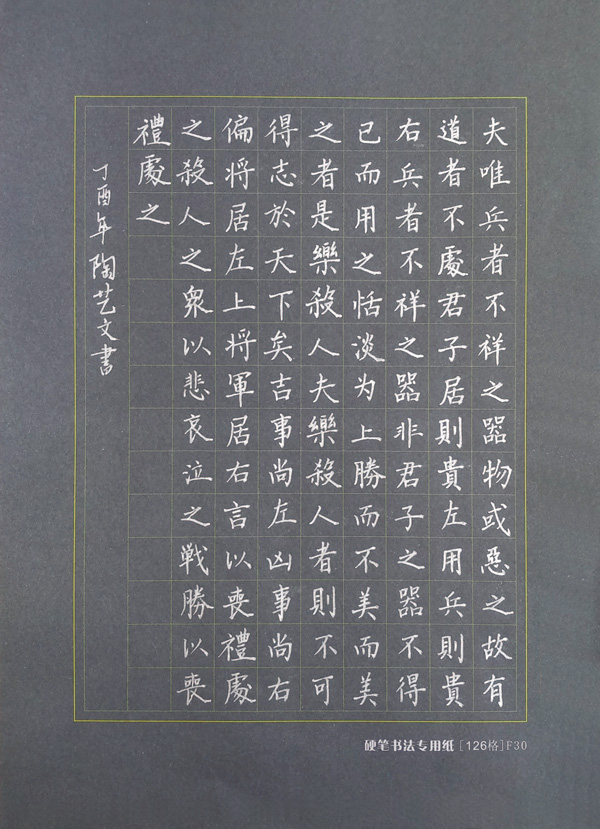 夫唯兵者不祥之器物或惡之故有
道者不處君子居則貴左用兵則貴
右兵者不祥之器非君子之器不得
已而用之恬淡为上勝而不美而美
之者是樂殺人夫樂殺人者則不可
得志於天下矣吉事尚左凶事尚右
偏将居左上将軍居右言以喪禮處
之殺人之衆以悲哀泣之戰勝以喪
禮處之
丁酉年陶艺文書
硬笔书法专用纸[126格]F30